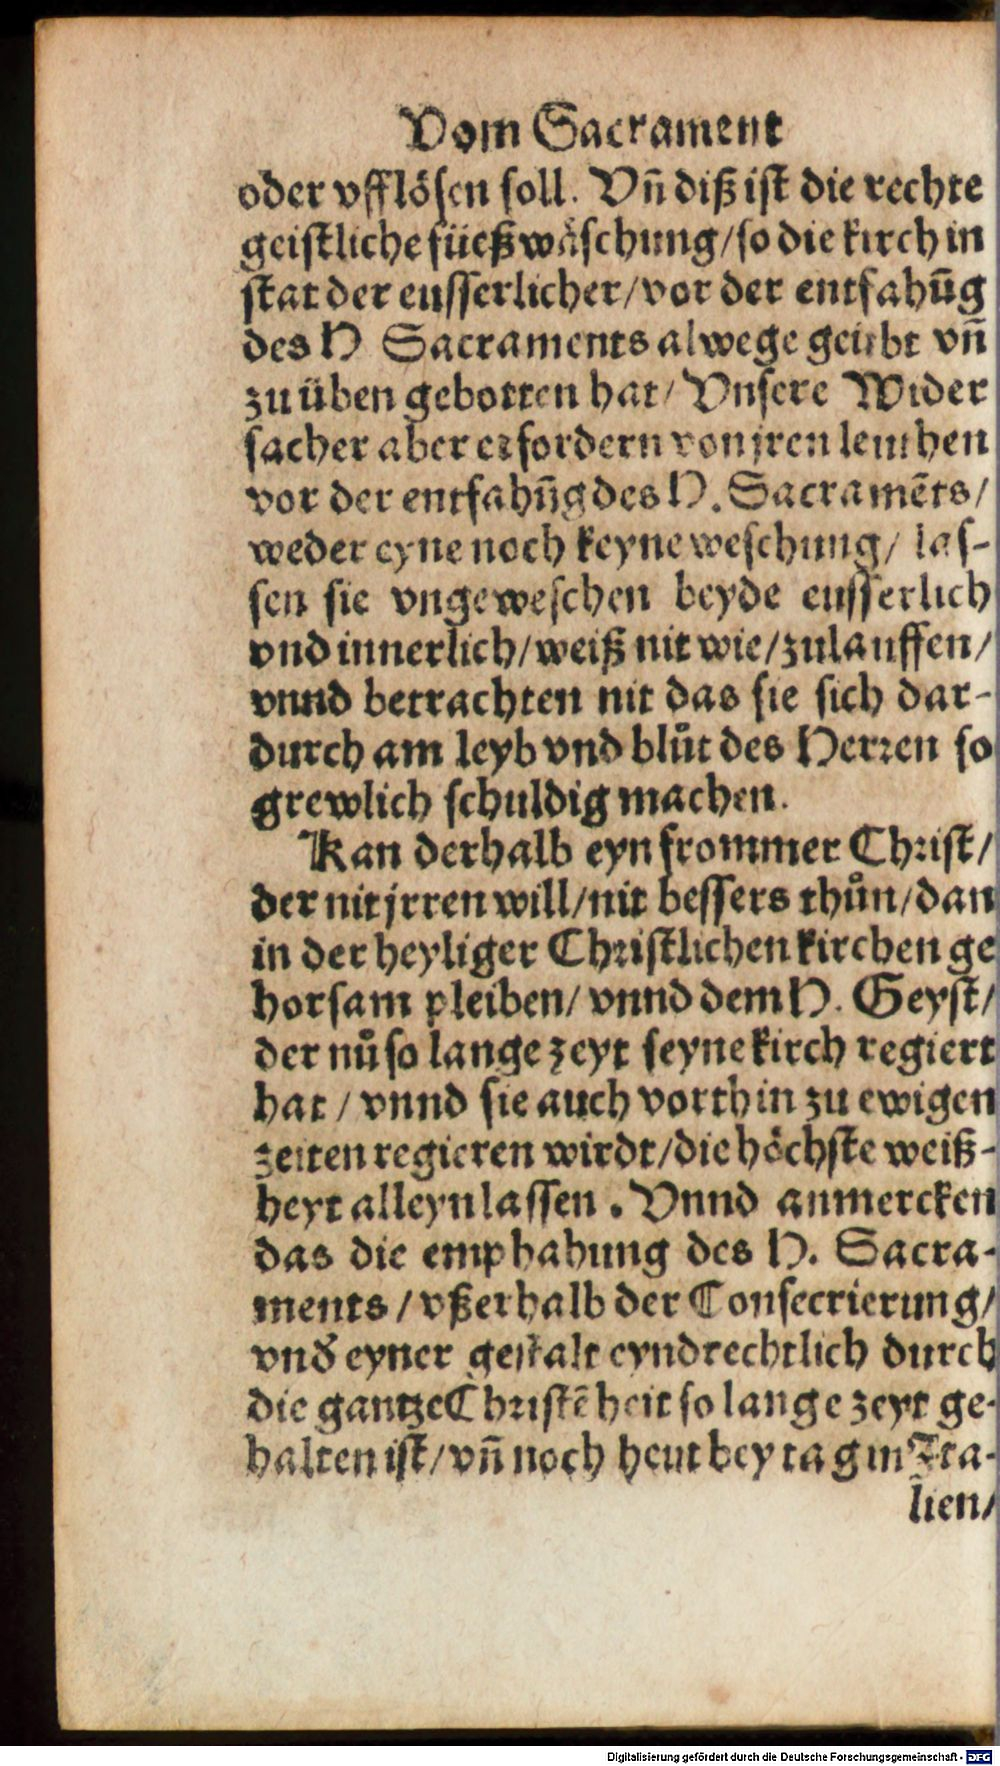 Vom Sacrament
oder vfflösen soll. Vñ diß ist die rechte
geistliche füeßwäschung/so die kirch in
stat der eusserlicher/vor der entfahūg
des H Sacraments alwege geübt vñ
zu üben gebotten hat/ Vnsere Wider
sacher aber erfordern von jren leuthen
vor der entfahūg des H. Sacramēts/
weder eyne noch keyne weschung/ las-
sen sie vngeweschen beyde eusserlich
vnd innerlich/weiß nit wie/zulauffen/
vnnd betrachten nit das sie sich dar-
durch am leyb vnd blůt des Herren so
grewlich schuldig machen.
Kan derhalb eyn frommer Christ/
der nit jrren will/nit bessers thůn/dan
in der heyliger Christlichen kirchen ge
horsam pleiben/ vnnd dem H. Geyst/
der nů so lange zeyt seyne kirch regiert
hat / vnnd sie auch vorthin zu ewigen
zeiten regieren wirdt/die höchste weiß-
heyt alleyn lassen . Vnnd anmercken
das die emphahung des H. Sacra-
ments / vßerhalb der Consecrierung/
vnd̕ eyner gestalt eyndrechtlich durch
die gantze Christēheit so lange zeyt ge-
halten ist/vñ noch heut bey tag in Ita-
lien/
Digitalisierung gefördert durch die Deutsche Forschungsgemeinschaft - DFG